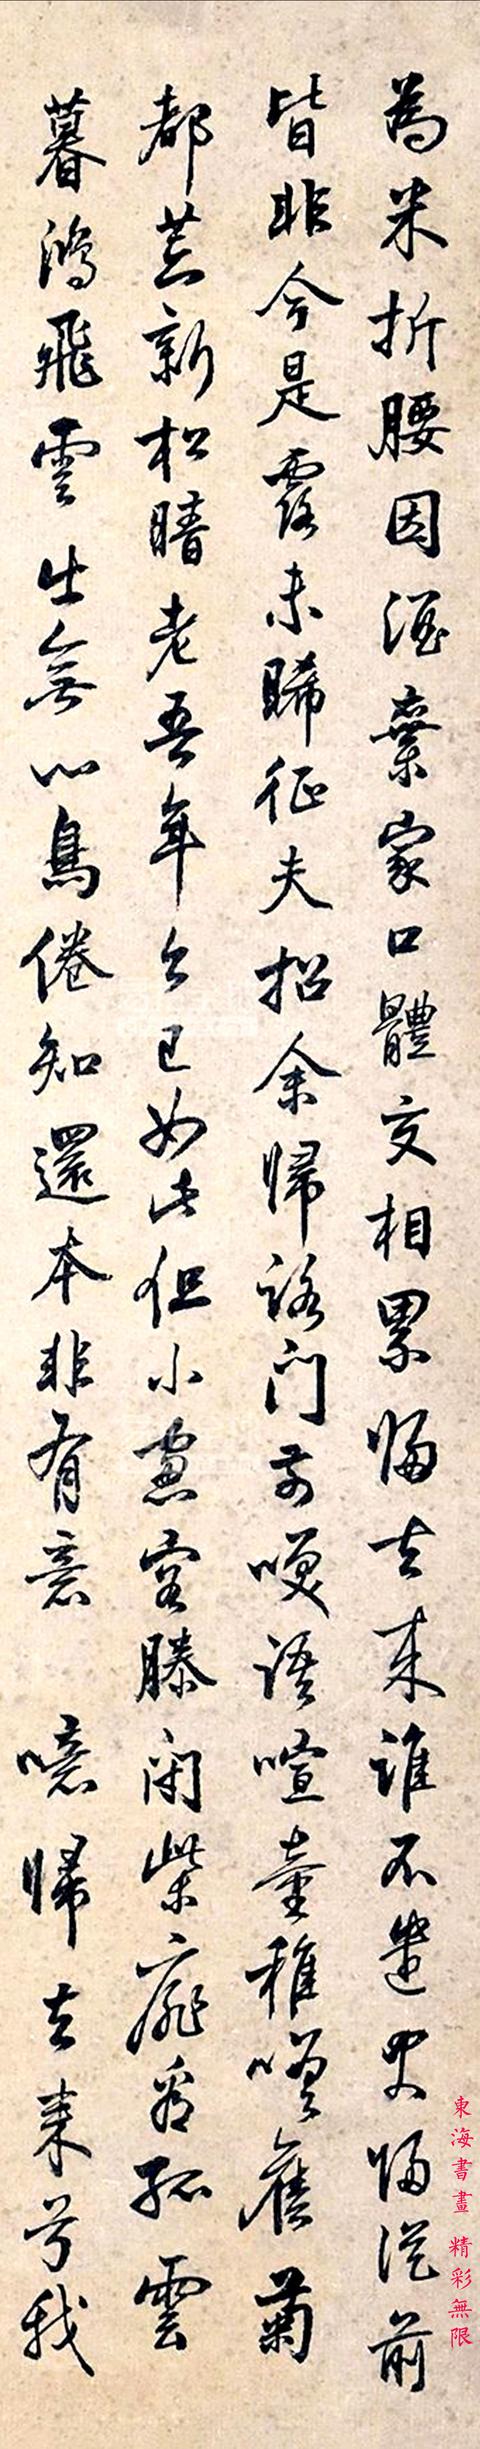 為米折腰因酒棄家口體交相累歸去來誰不遣君歸從前
皆非今是露未晞征夫指余歸路門前咲語喧童稚嗟舊菊
都荒新松暗老吾年今已如此但小窓容膝閉柴扉看孤雲
暮鴻飛雲出無心鳥倦知還本非有意 噫歸去來兮我
東海書畫 精彩無限